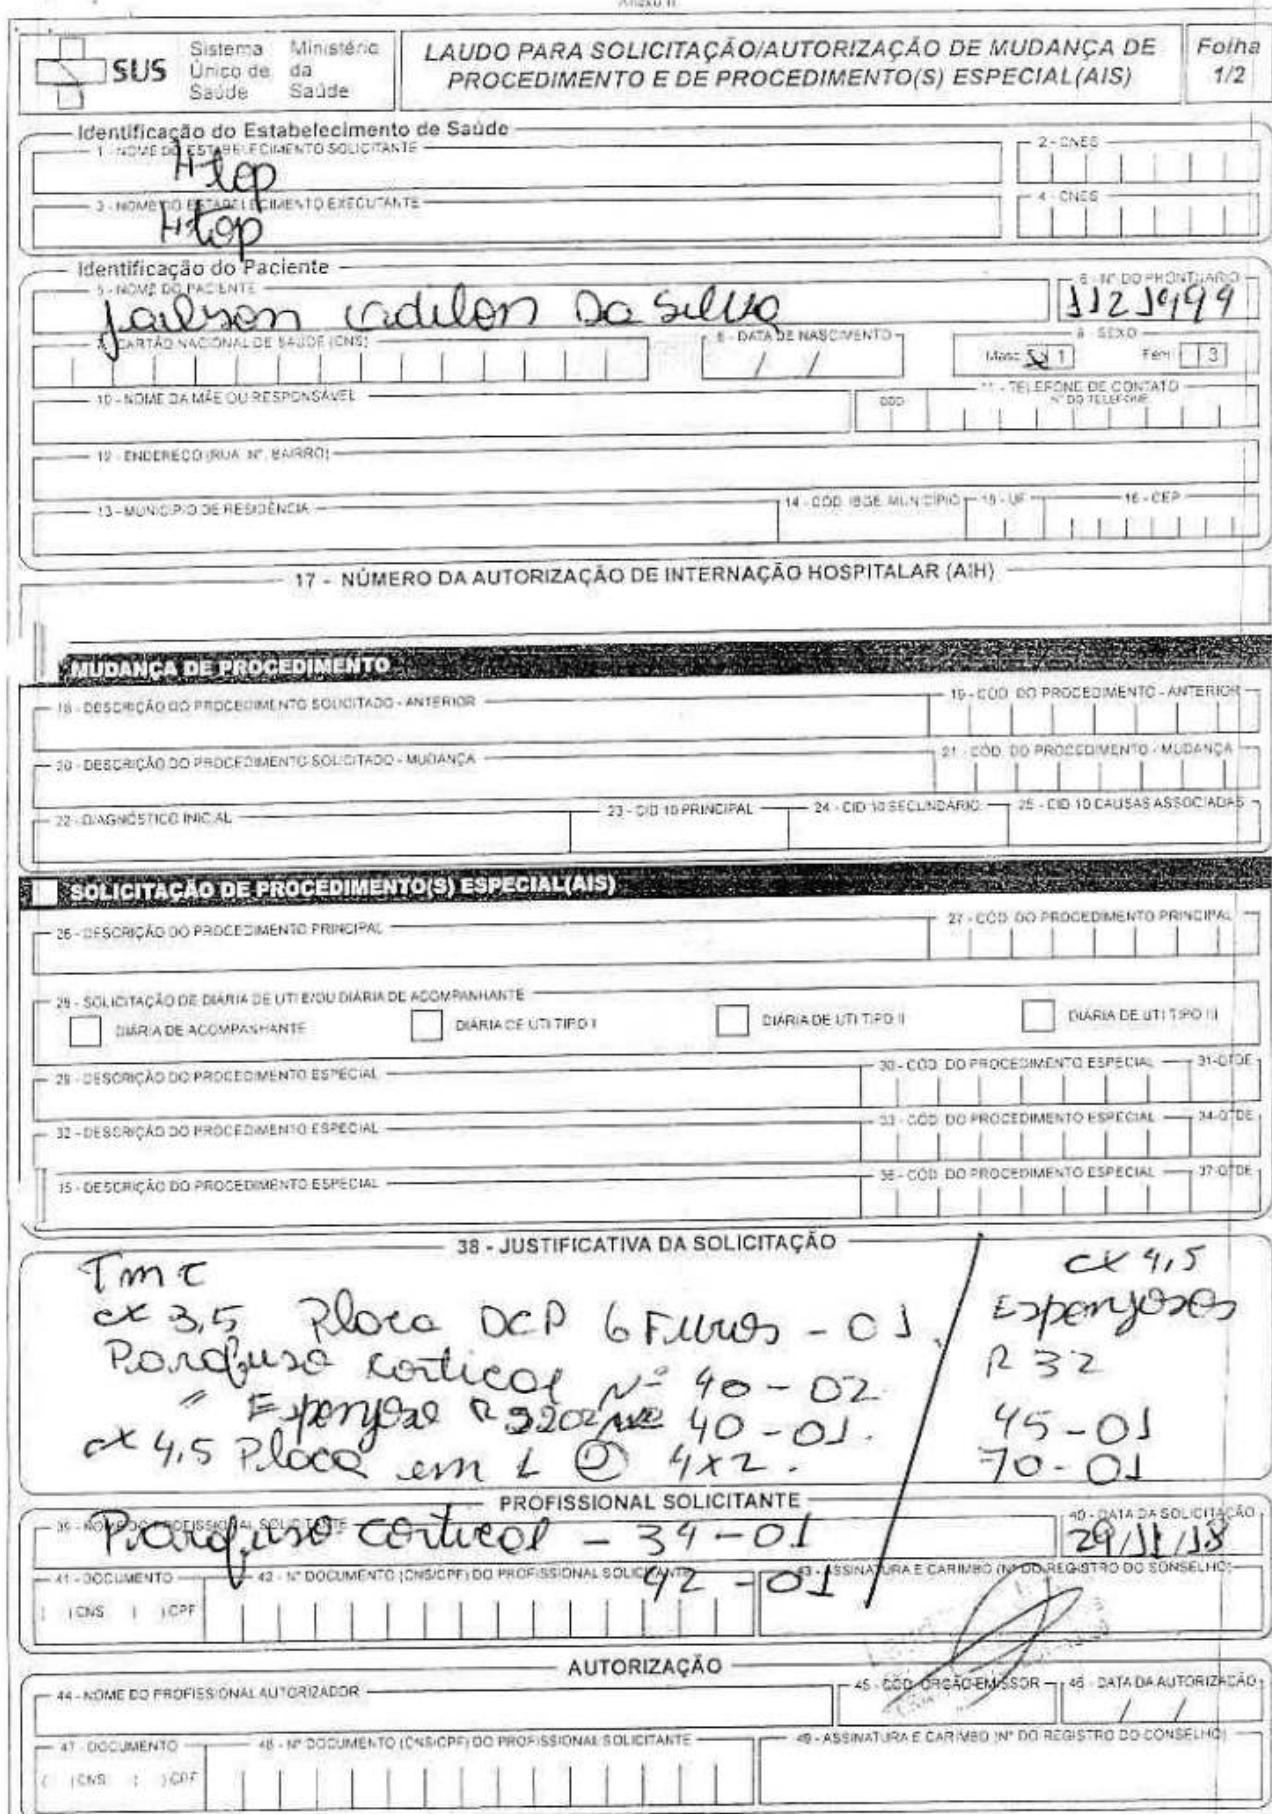 Anexo II
SUS
Sistema Único de Saúde
Ministério da Saúde
LAUDO PARA SOLICITAÇÃO/AUTORIZAÇÃO DE MUDANÇA DE PROCEDIMENTO E DE PROCEDIMENTO(S) ESPECIAL(AIS)
Folha 1/2
Identificação do Estabelecimento de Saúde
1 - NOME DO ESTABELECIMENTO SOLICITANTE
2 - CNES
Htop
3 - NOME DO ESTABELECIMENTO EXECUTANTE
4 - CNES
Htop
Identificação do Paciente
5 - NOME DO PACIENTE
6 - Nº DO PRONTUÁRIO
Da Silva
1121999
7 - CARTÃO NACIONAL DE SAÚDE (CNS)
8 - DATA DE NASCIMENTO
/ /
9 - SEXO
Masc 1
Fem 3
10 - NOME DA MÃE OU RESPONSÁVEL
11 - TELEFONE DE CONTATO
DDD
Nº DO TELEFONE
12 - ENDEREÇO (RUA, Nº, BAIRRO)
13 - MUNICÍPIO DE RESIDÊNCIA
14 - CÓD. IBGE MUNICÍPIO
15 - UF
16 - CEP
17 - NÚMERO DA AUTORIZAÇÃO DE INTERNAÇÃO HOSPITALAR (AIH)
MUDANÇA DE PROCEDIMENTO
18 - DESCRIÇÃO DO PROCEDIMENTO SOLICITADO - ANTERIOR
19 - CÓD. DO PROCEDIMENTO - ANTERIOR
20 - DESCRIÇÃO DO PROCEDIMENTO SOLICITADO - MUDANÇA
21 - CÓD. DO PROCEDIMENTO - MUDANÇA
22 - DIAGNÓSTICO INICIAL
23 - CID 10 PRINCIPAL
24 - CID 10 SECUNDÁRIO
25 - CID 10 CAUSAS ASSOCIADAS
SOLICITAÇÃO DE PROCEDIMENTO(S) ESPECIAL(AIS)
26 - DESCRIÇÃO DO PROCEDIMENTO PRINCIPAL
27 - CÓD. DO PROCEDIMENTO PRINCIPAL
28 - SOLICITAÇÃO DE DIÁRIA DE UTI E/OU DIÁRIA DE ACOMPANHANTE
DIÁRIA DE ACOMPANHANTE
DIÁRIA DE UTI TIPO I
DIÁRIA DE UTI TIPO II
DIÁRIA DE UTI TIPO III
29 - DESCRIÇÃO DO PROCEDIMENTO ESPECIAL
30 - CÓD. DO PROCEDIMENTO ESPECIAL
31-QTDE
32 - DESCRIÇÃO DO PROCEDIMENTO ESPECIAL
33 - CÓD. DO PROCEDIMENTO ESPECIAL
34-QTDE
15 - DESCRIÇÃO DO PROCEDIMENTO ESPECIAL
36 - CÓD. DO PROCEDIMENTO ESPECIAL
37-QTDE
38 - JUSTIFICATIVA DA SOLICITAÇÃO
Tmc
cx 3,5 Placa DCP 6 Furos - 01.
Parafuso cortical Nº 40 - 02
" Esponjoso 40 - 01.
cx 4,5 Placa em L 4x2.
cx 4,5
Esponjosos
R 32
45 - 01
70 - 01
PROFISSIONAL SOLICITANTE
39 - NOME DO PROFISSIONAL SOLICITANTE
40 - DATA DA SOLICITAÇÃO
Parafuso cortical - 34 - 01
29/11/18
41 - DOCUMENTO
42 - Nº DOCUMENTO (CNS/CPF) DO PROFISSIONAL SOLICITANTE
42 - 01
43 - ASSINATURA E CARIMBO (Nº DO REGISTRO DO CONSELHO)
( ) CNS ( ) CPF
AUTORIZAÇÃO
44 - NOME DO PROFISSIONAL AUTORIZADOR
45 - CÓD. ORGÃO EMISSOR
46 - DATA DA AUTORIZAÇÃO
/ /
47 - DOCUMENTO
48 - Nº DOCUMENTO (CNS/CPF) DO PROFISSIONAL SOLICITANTE
49 - ASSINATURA E CARIMBO (Nº DO REGISTRO DO CONSELHO)
( ) CNS ( ) CPF